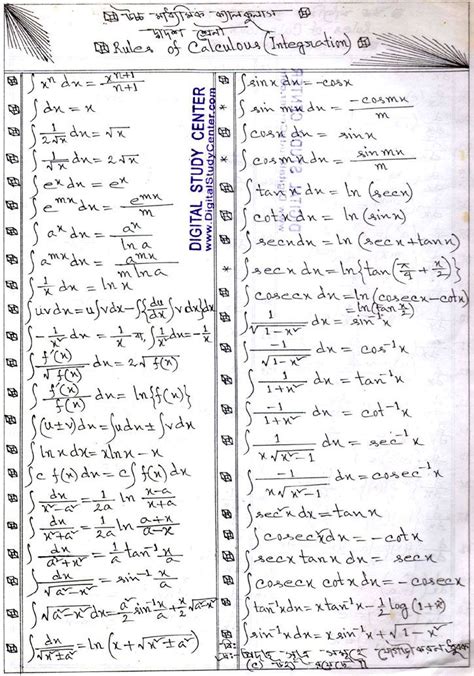 উচ্চ মাধ্যমিক ক্যালকুলাস
দ্বাদশ শ্রেণী
Rules of Calculous (Integration)
∫xⁿ dx = xⁿ⁺¹/n+1
∫dx = x
∫1/2√x dx = √x
∫1/√x dx = 2√x
∫eˣ dx = eˣ
∫eᵐˣ dx = eᵐˣ/m
∫aˣ dx = aˣ/ln a
∫aᵐˣ dx = aᵐˣ/m ln a
∫1/x dx = ln x
∫uv dx = u∫v dx - ∫{du/dx ∫v dx}dx
∫-1/x² dx = 1/x বা, ∫1/x² dx = -1/x
∫f'(x)/√f(x) dx = 2√f(x)
∫f'(x)/f(x) dx = ln{f(x)}
∫(u±v)dx = ∫u dx ± ∫v dx
∫ln x dx = x ln x - x
∫c f(x) dx = c∫f(x) dx
∫dx/x²-a² = 1/2a ln x-a/x+a
∫dx/x²+a² = 1/2a ln a+x/a-x
∫dx/a²+x² = 1/a tan⁻¹ x/a
∫dx/√a²-x² = sin⁻¹ x/a
∫√a²-x² dx = a²/2 sin⁻¹ x/a + x/2 √a²-x²
∫dx/√x²±a² = ln(x+√x²±a²)
DIGITAL STUDY CENTER
www.DigitalStudyCenter.com
∫sinx dx = -cosx
∫sin mx dx = -cosmx/m
∫cosx dx = sinx
∫cosmx dx = sinmx/m
∫tanx dx = ln(secx)
∫cotx dx = ln(sinx)
∫secx dx = ln(secx+tanx)
∫secx dx = ln{tan(π/4 + x/2)}
∫cosecx dx = ln(cosecx-cotx)
= ln(tan x/2)
∫1/√1-x² dx = sin⁻¹x
∫-1/√1-x² dx = cos⁻¹x
∫1/1+x² dx = tan⁻¹x
∫-1/1+x² dx = cot⁻¹x
∫1/x√x²-1 dx = sec⁻¹x
∫-1/x√x²-1 dx = cosec⁻¹x
∫sec²x dx = tanx
∫cosec²x dx = -cotx
∫secx tanx dx = secx
∫cosecx cotx dx = -cosecx
∫tan⁻¹x dx = x tan⁻¹x - 1/2 log(1+x²)
∫sin⁻¹x dx = x sin⁻¹x + √1-x²